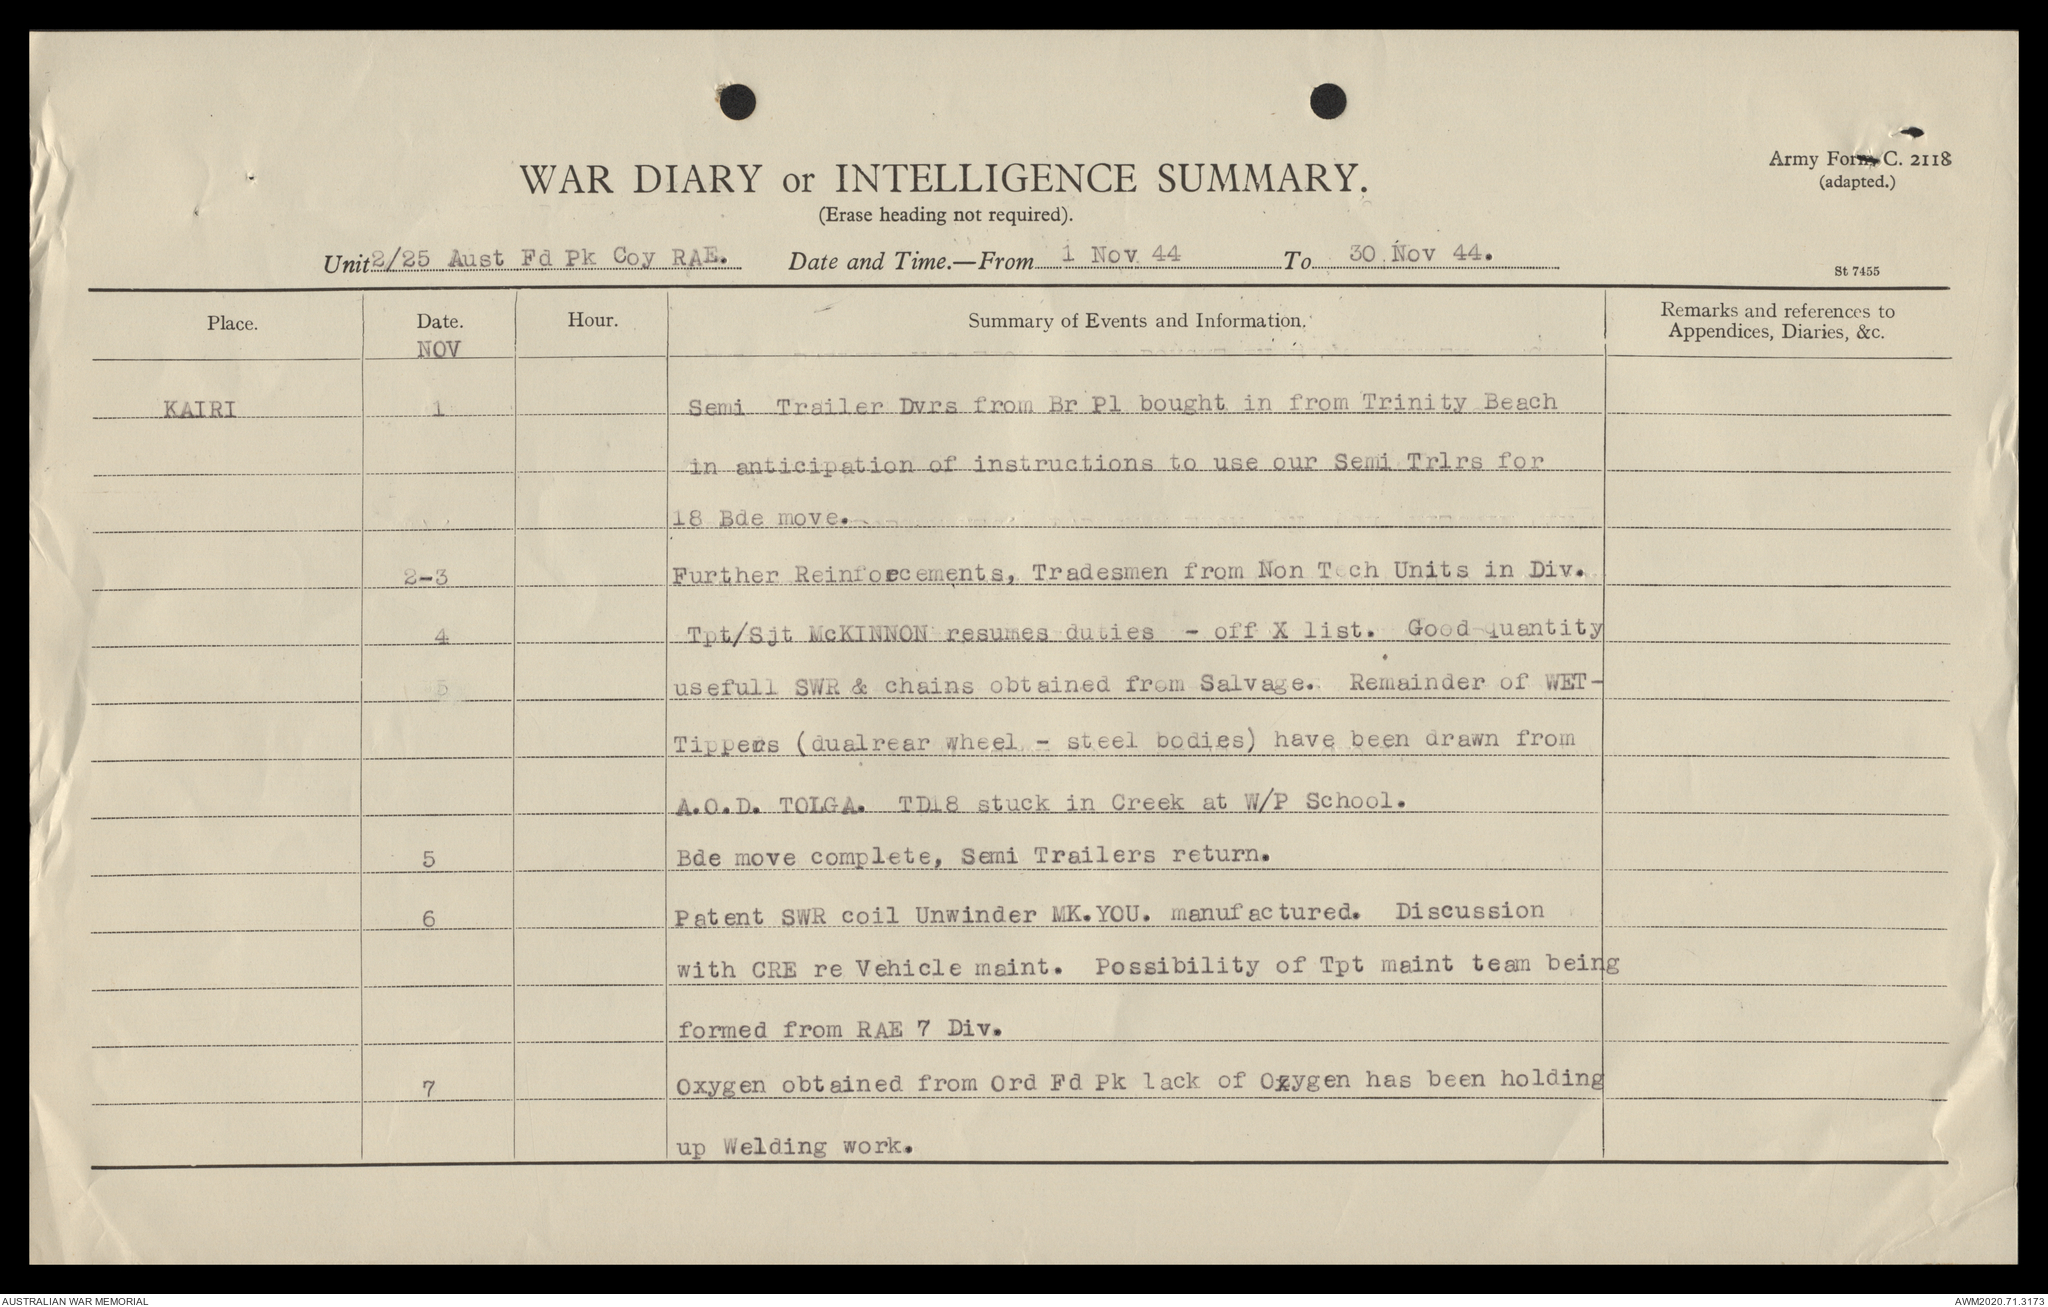 WAR DIARY or INTELLIGENCE SUMMARY.
(Erase heading not required).
Army Form C. 2118
(adapted.)
Unit 2/25 Aust Fd Pk Coy RAE. Date and Time.—From 1 Nov 44 To 30 Nov 44.
St 7455
Place. Date. Hour. Summary of Events and Information. Remarks and references to
Appendices, Diaries, &c.
NOV
KAIRI 1 Semi Trailer Dvrs from Br Pl bought in from Trinity Beach
in anticipation of instructions to use our Semi Trlrs for
18 Bde move.
2-3 Further Reinforcements, Tradesmen from Non Tech Units in Div.
4 Tpt/Sjt McKINNON resumes duties - off X list. Good quantity
5 usefull SWR & chains obtained from Salvage. Remainder of WET-
Tippers (dualrear wheel - steel bodies) have been drawn from
A.O.D. TOLGA. TD18 stuck in Creek at W/P School.
5 Bde move complete, Semi Trailers return.
6 Patent SWR coil Unwinder MK.YOU. manufactured. Discussion
with CRE re Vehicle maint. Possibility of Tpt maint team being
formed from RAE 7 Div.
7 Oxygen obtained from Ord Fd Pk lack of Oxygen has been holding
up Welding work.
AUSTRALIAN WAR MEMORIAL
AWM2020.71.3173